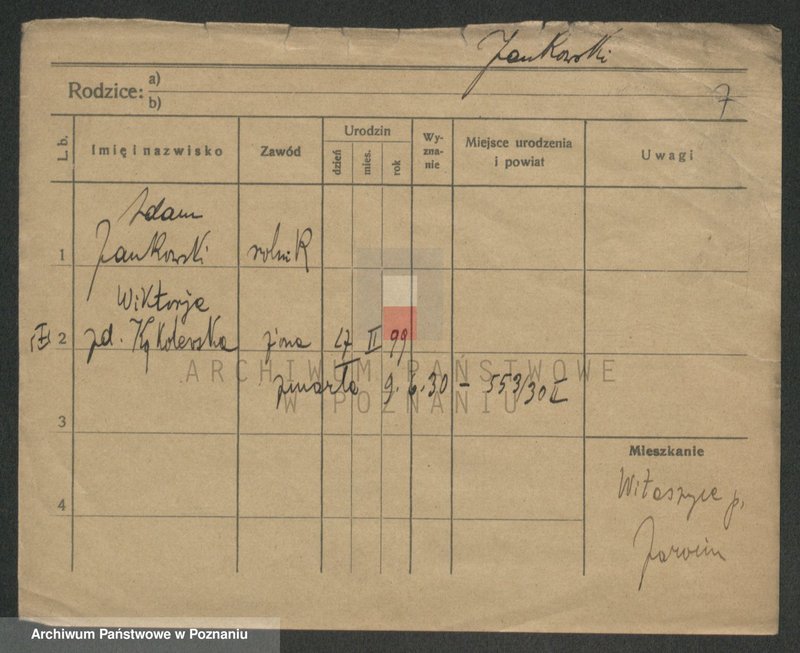 Jankowski
Rodzice: a)
b)
7
L. b.
Imię i nazwisko
Zawód
Urodzin
dzień
mies.
rok
Wy-
zna-
nie
Miejsce urodzenia
i powiat
Uwagi
Adam
1 Jankowski rolnik
Wiktorja
2 zd. Kąkolewska żona 27 II 99
zmarła 9.6.30 – 553/30
3
4
Mieszkanie
Witaszyce p.
Jarocin
ARCHIWUM PAŃSTWOWE
W POZNANIU
Archiwum Państwowe w Poznaniu